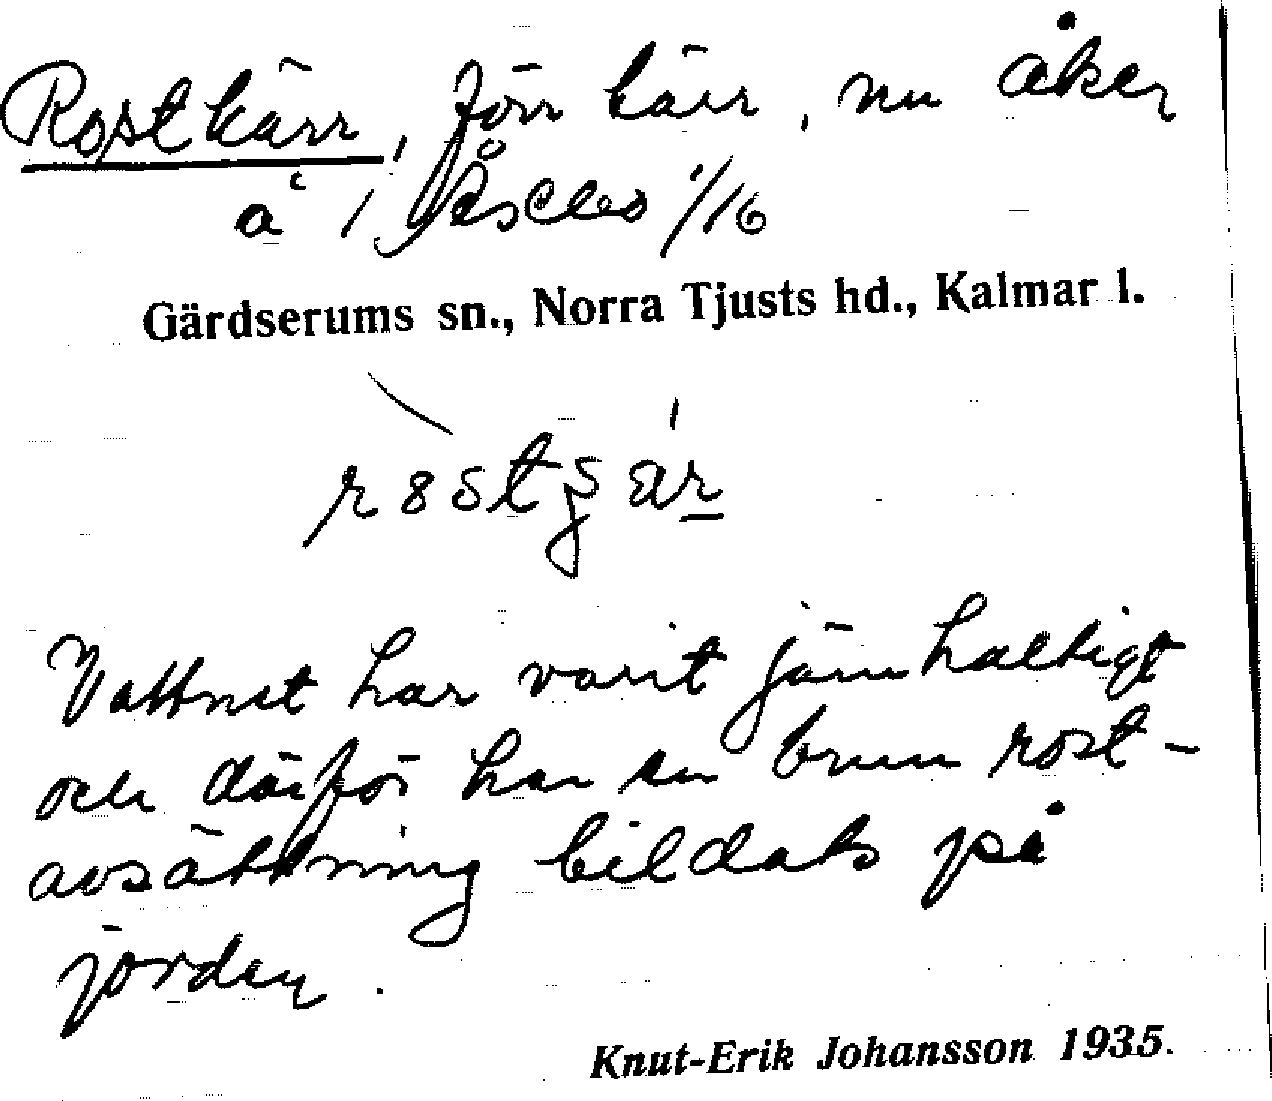 Rostkärr, förr kärr, nu åker
å
1/16
Gärdserums sn., Norra Tjusts hd., Kalmar l.
Vattnet har varit järnhaltigt
och därför har en brun rost-
avsättning bildats på
jorden.
Knut-Erik Johansson 1935.